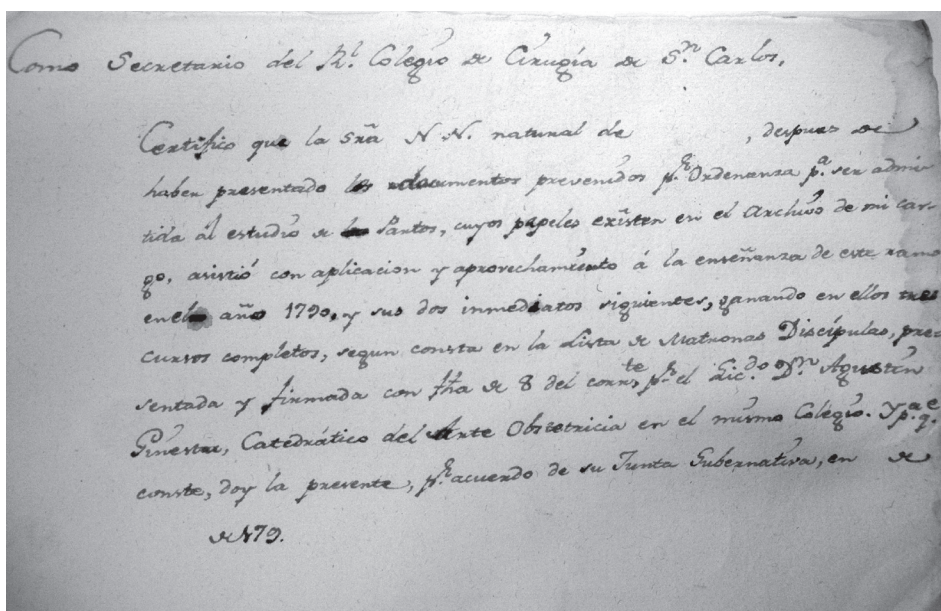 Como Secretario del Rl. Colegio de Cirugía de Sn. Carlos,
Certifico que la Srã N N. natural de , despues de
haber presentado los documentos prevenidos pr. Ordenanza pa. ser admi-
tida âl estudio de Partos, cuyos papeles exîsten en el Archivo de mi car-
go, asistió con aplicacion y aprovechamiento á la enseñanza de este ramo
en el año 1790, y sus dos inmediatos siguientes, ganando en ellos tres
cursos completos, segun consta en la Lista de Matronas Discípulas, pre-
sentada y firmada con fha de 8 del corrte. pr. el Licdo. Dn. Agustin
Ginesta, Catedrático del Arte Obstetricia en el mismo Colegio. Y pa. qe.
conste, doy la presente, pr. acuerdo de su Junta Gubernativa, en de
de 179.